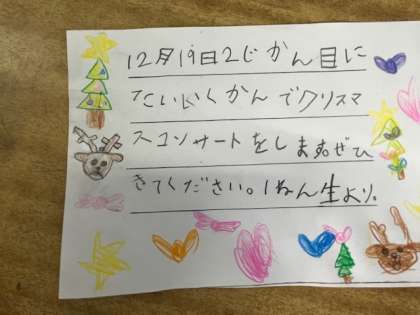 12月19日2じかん目に
たいいくかんでクリスマ
スコンサートをします。ぜひ
きてください。1ねん生より。